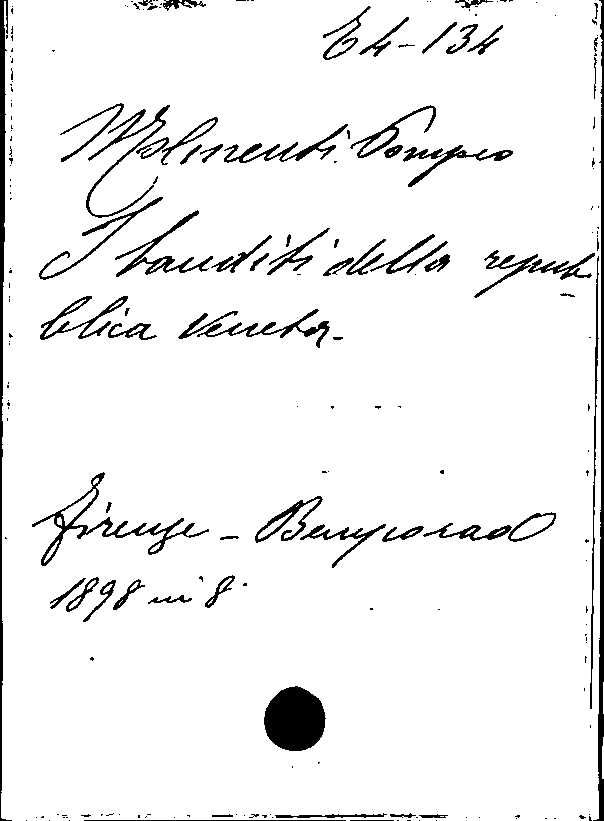 E4-134
Molmenti Pompeo
I banditi della repub-
blica Veneta.
Firenze - Bemporad
1898 in 8°